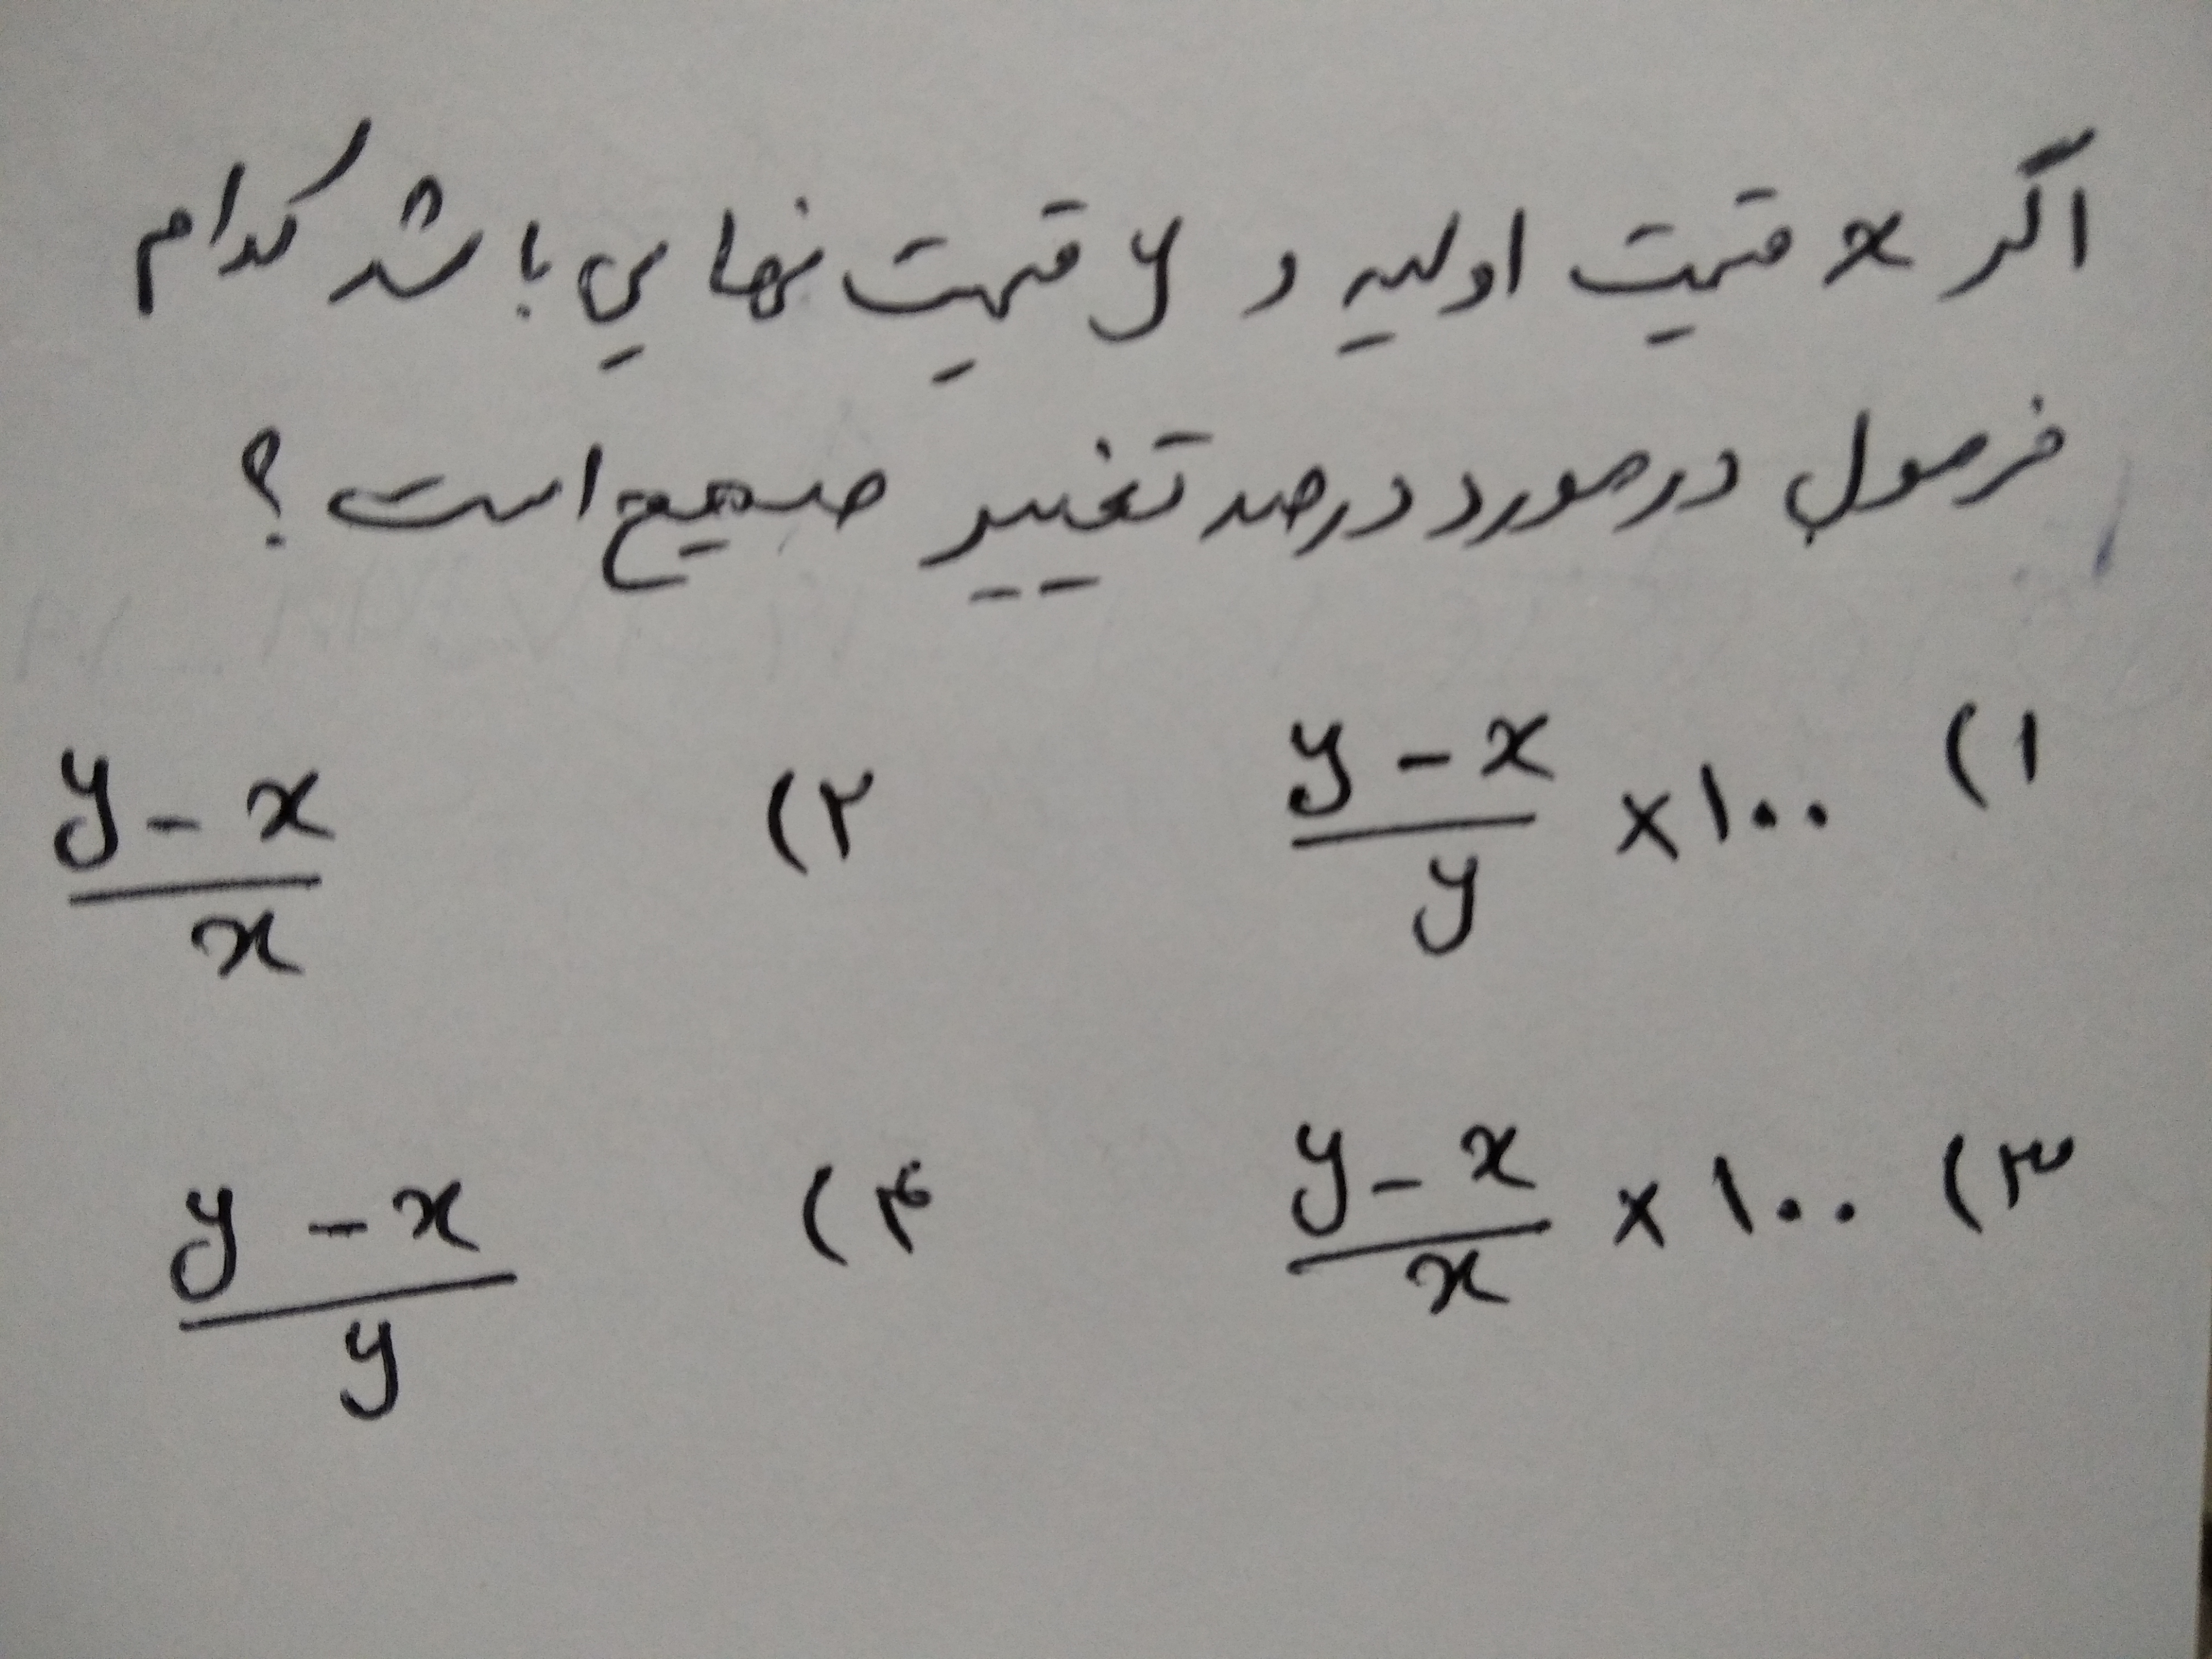 اگر x قیمت اولیه و y قیمت نهایی باشد کدام
فرمول در مورد درصد تغییر صحیح است؟
۱) (y - x)/y × ۱۰۰
۲) (y - x)/x
۳) (y - x)/x × ۱۰۰
۴) (y - x)/y